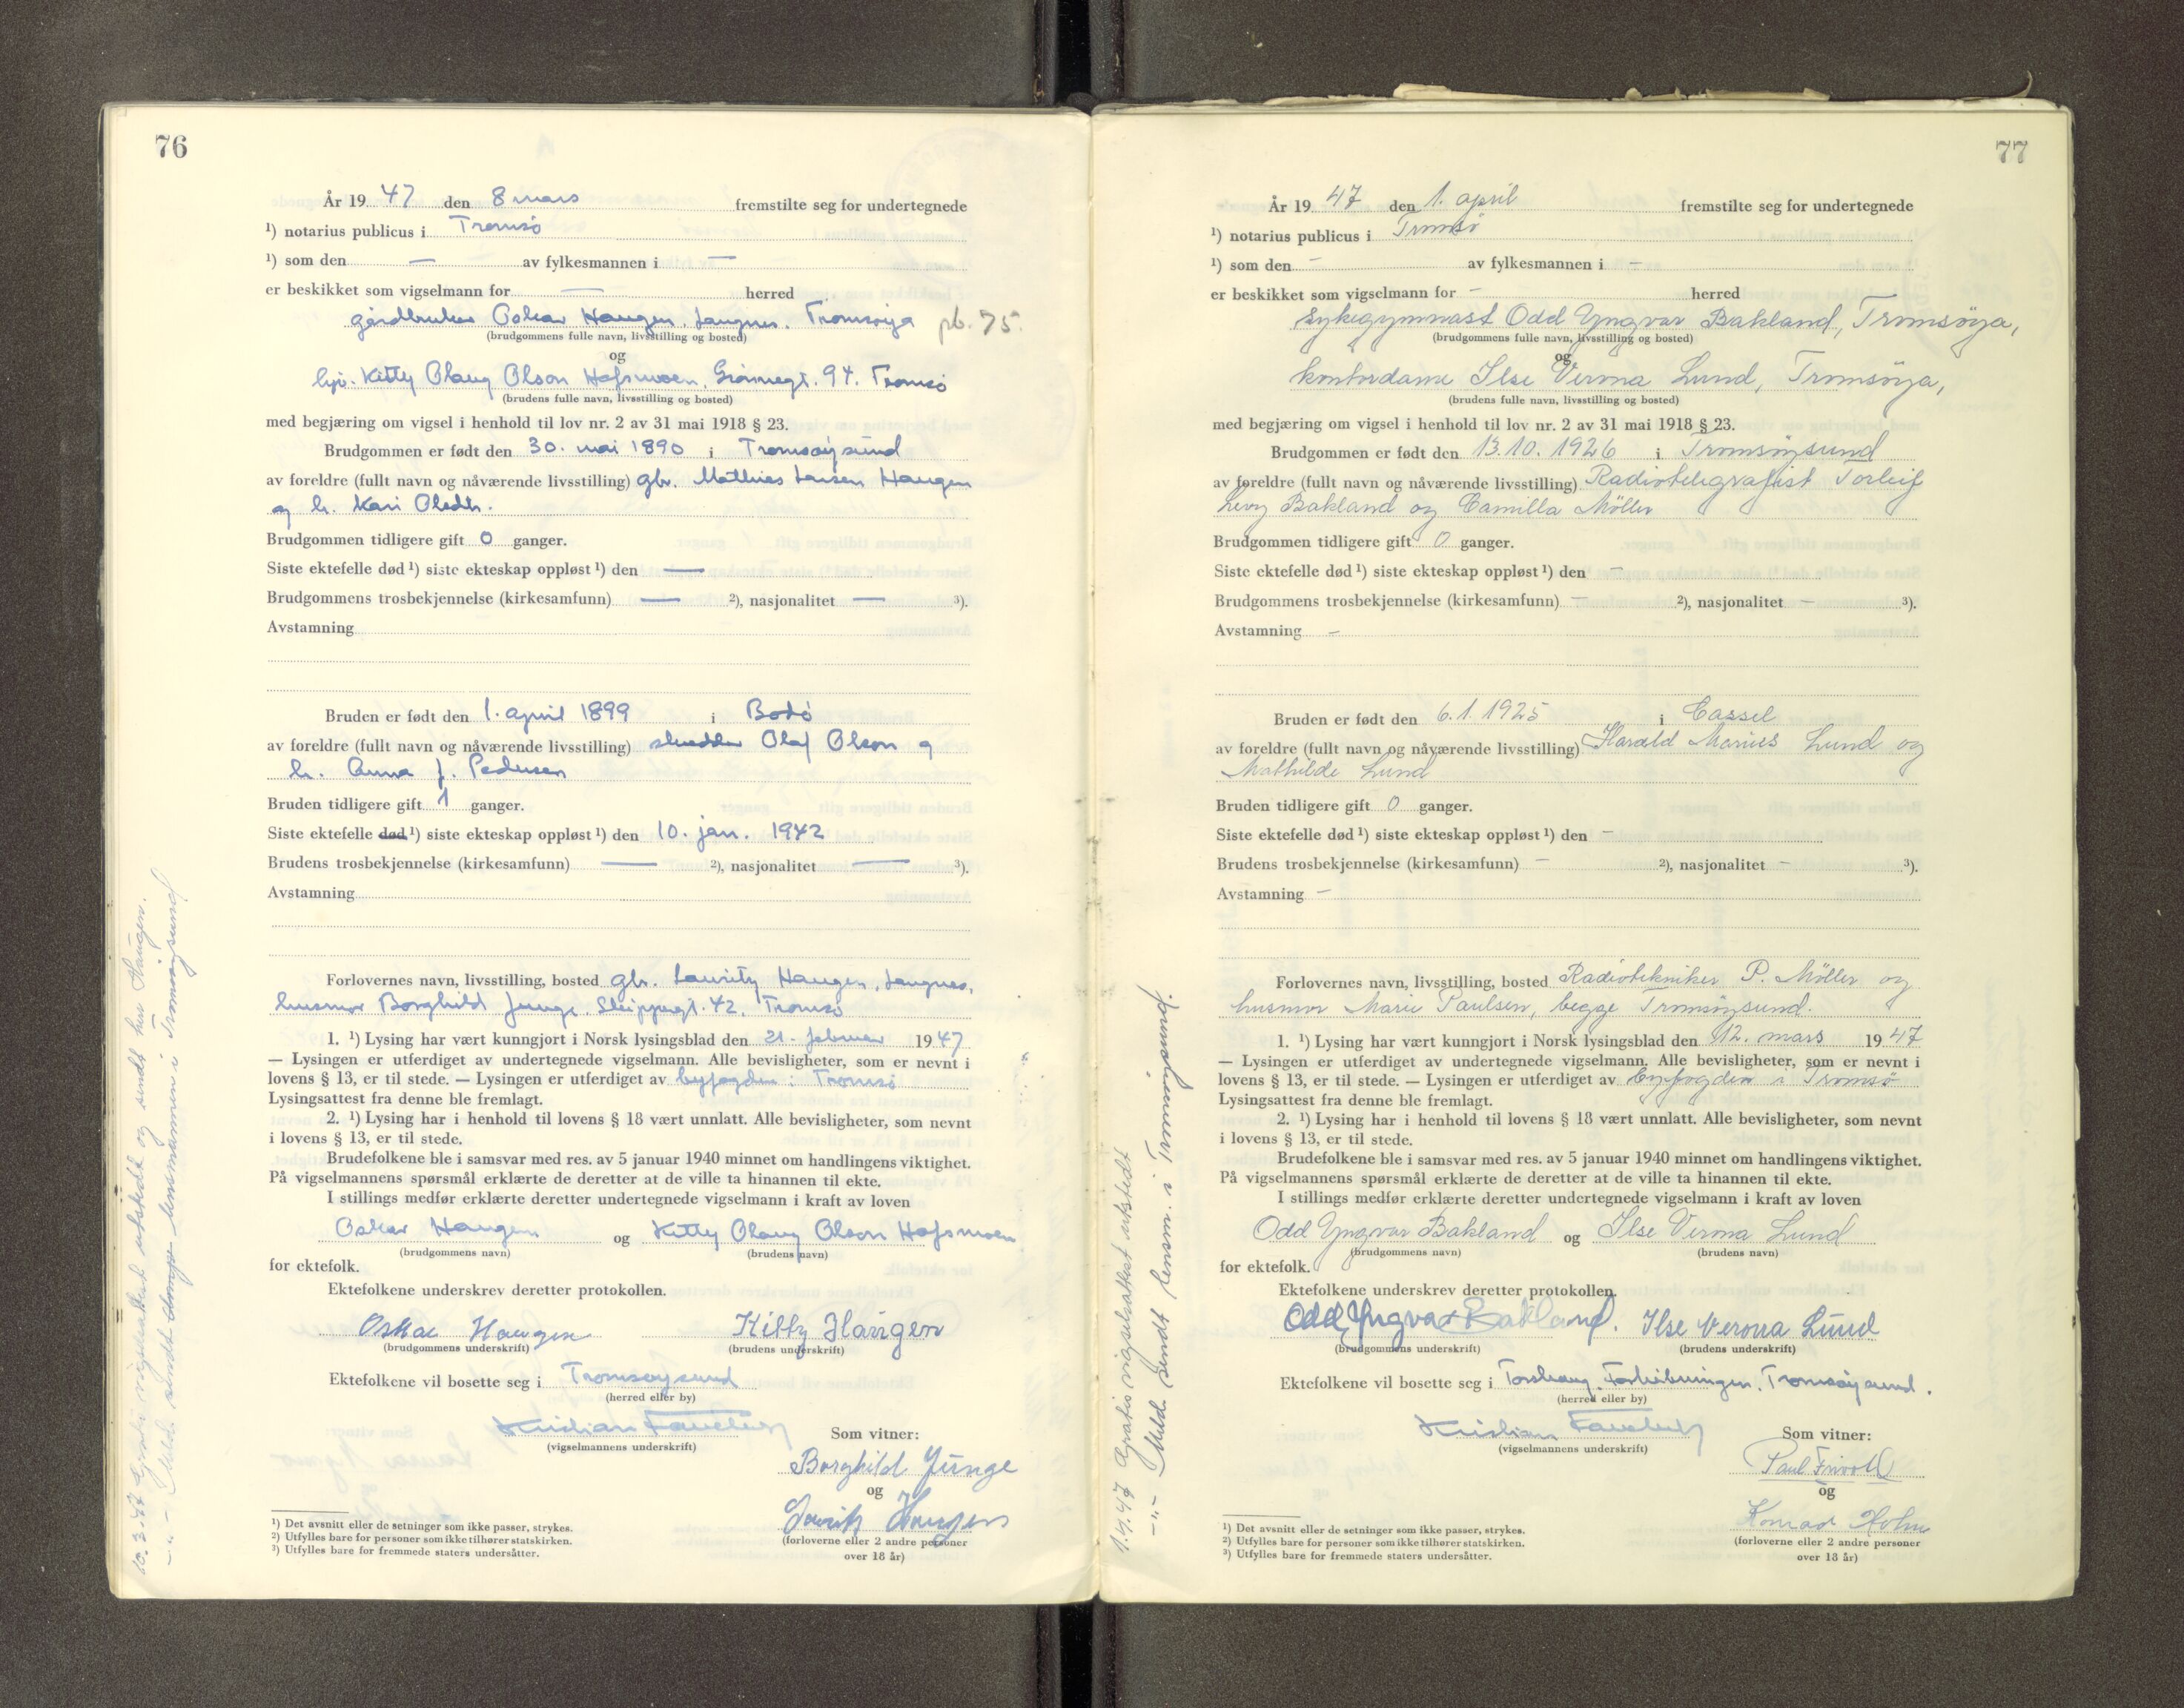 76
År 19 47 den 8 mars fremstilte seg for undertegnede
¹) notarius publicus i Tromsö
¹) som den — av fylkesmannen i —
er beskikket som vigselmann for — herred
gårdbruker Oskar Haugen, Langnes, Tromsöya pb. 75
(brudgommens fulle navn, livsstilling og bosted)
og
Kitty Olaug Olson Hofsmoen, Grönnegt. 94, Tromsö
(brudens fulle navn, livsstilling og bosted)
med begjæring om vigsel i henhold til lov nr. 2 av 31 mai 1918 § 23.
Brudgommen er født den 30. mai 1890 i Tromsöysund
av foreldre (fullt navn og nåværende livsstilling) gbr. Mathias Larsen Haugen
og h. Kari Olsdtr.
Brudgommen tidligere gift 0 ganger.
Siste ektefelle død ¹) siste ekteskap oppløst ¹) den —
Brudgommens trosbekjennelse (kirkesamfunn) — ²), nasjonalitet — ³).
Avstamning
Bruden er født den 1. april 1899 i Bodö
av foreldre (fullt navn og nåværende livsstilling) skredder Olaf Olson og
h. Anna J. Pedersen
Bruden tidligere gift 1 ganger.
Siste ektefelle død ¹) siste ekteskap oppløst ¹) den 10. jan. 1942
Brudens trosbekjennelse (kirkesamfunn) — ²), nasjonalitet — ³).
Avstamning
Forlovernes navn, livsstilling, bosted gbr. Lauritz Haugen, Langnes,
husmor Borghild Junge, Skippergt. 42, Tromsö
1. ¹) Lysing har vært kunngjort i Norsk lysingsblad den 21. februar 1947
— Lysingen er utferdiget av undertegnede vigselmann. Alle bevisligheter, som er nevnt i
lovens § 13, er til stede. — Lysingen er utferdiget av byfogden i Tromsö
Lysingsattest fra denne ble fremlagt.
2. ¹) Lysing har i henhold til lovens § 18 vært unnlatt. Alle bevisligheter, som nevnt
i lovens § 13, er til stede.
Brudefolkene ble i samsvar med res. av 5 januar 1940 minnet om handlingens viktighet.
På vigselmannens spørsmål erklærte de deretter at de ville ta hinannen til ekte.
I stillings medfør erklærte deretter undertegnede vigselmann i kraft av loven
Oskar Haugen og Kitty Olaug Olson Hofsmoen
(brudgommens navn) (brudens navn)
for ektefolk.
Ektefolkene underskrev deretter protokollen.
Oskar Haugen Kitty Haugen
(brudgommens underskrift) (brudens underskrift)
Ektefolkene vil bosette seg i Tromsöysund
(herred eller by)
Kristian
(vigselmannens underskrift)
Som vitner:
Borghild Junge
og
Lauritz Haugen
(forloverne eller 2 andre personer
over 18 år)
¹) Det avsnitt eller de setninger som ikke passer, strykes.
²) Utfylles bare for personer som ikke tilhører statskirken.
³) Utfylles bare for fremmede staters undersåtter.
10.3.47 Gratis vigselsattest utstedt og sendt hr. Haugen.
—"— Meld. sendt lensmannen i Tromsöysund
77
År 19 47 den 1. april fremstilte seg for undertegnede
¹) notarius publicus i Tromsö
¹) som den — av fylkesmannen i —
er beskikket som vigselmann for — herred
Sykegymnast Odd Yngvar Bakland, Tromsöya,
(brudgommens fulle navn, livsstilling og bosted)
og
kontordame Ilse Verona Lund, Tromsöya,
(brudens fulle navn, livsstilling og bosted)
med begjæring om vigsel i henhold til lov nr. 2 av 31 mai 1918 § 23.
Brudgommen er født den 13.10.1926 i Tromsöysund
av foreldre (fullt navn og nåværende livsstilling) Radiotelegrafist Torleif
Levy Bakland og Camilla Möller
Brudgommen tidligere gift 0 ganger.
Siste ektefelle død ¹) siste ekteskap oppløst ¹) den —
Brudgommens trosbekjennelse (kirkesamfunn) — ²), nasjonalitet — ³).
Avstamning —
Bruden er født den 6.1.1925 i Cassel
av foreldre (fullt navn og nåværende livsstilling) Harald Marius Lund og
Mathilde Lund
Bruden tidligere gift 0 ganger.
Siste ektefelle død ¹) siste ekteskap oppløst ¹) den —
Brudens trosbekjennelse (kirkesamfunn) — ²), nasjonalitet — ³).
Avstamning —
Forlovernes navn, livsstilling, bosted Radiotekniker P. Möller og
husmor Marie Paulsen, begge Tromsöysund.
1. ¹) Lysing har vært kunngjort i Norsk lysingsblad den 12. mars 1947
— Lysingen er utferdiget av undertegnede vigselmann. Alle bevisligheter, som er nevnt i
lovens § 13, er til stede. — Lysingen er utferdiget av Byfogden i Tromsö
Lysingsattest fra denne ble fremlagt.
2. ¹) Lysing har i henhold til lovens § 18 vært unnlatt. Alle bevisligheter, som nevnt
i lovens § 13, er til stede.
Brudefolkene ble i samsvar med res. av 5 januar 1940 minnet om handlingens viktighet.
På vigselmannens spørsmål erklærte de deretter at de ville ta hinannen til ekte.
I stillings medfør erklærte deretter undertegnede vigselmann i kraft av loven
Odd Yngvar Bakland og Ilse Verona Lund
(brudgommens navn) (brudens navn)
for ektefolk.
Ektefolkene underskrev deretter protokollen.
Odd Yngvar Bakland. Ilse Verona Lund
(brudgommens underskrift) (brudens underskrift)
Ektefolkene vil bosette seg i Torshaug, Tromsöysund.
(herred eller by)
Kristian
(vigselmannens underskrift)
Som vitner:
Paul
og
Konrad Holm
(forloverne eller 2 andre personer
over 18 år)
¹) Det avsnitt eller de setninger som ikke passer, strykes.
²) Utfylles bare for personer som ikke tilhører statskirken.
³) Utfylles bare for fremmede staters undersåtter.
1.4.47 Gratis vigselsattest utstedt
—"— Meld. sendt lensm. i Tromsöysund.